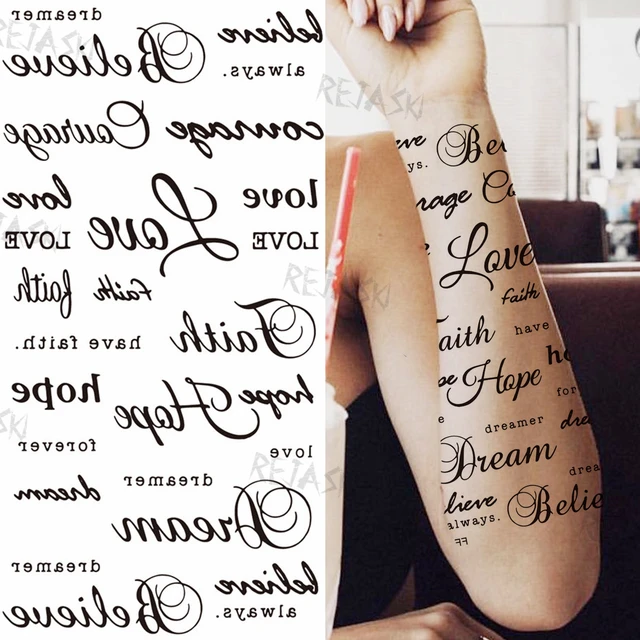 dreamer
believe
Believe
always.
Courage courage
love
love
Love
LOVE
LOVE
faith
faith
Faith
have faith.
hope
Hope
hope
forever
love
dreamer
dream
Dream
dreamer
believe
Believe
always.
REJASKI
REJASKI
REJASKI
REJASKI
eve
ys.
Be
rage Co
Love
faith
Faith
have
Hope
for
dreamer
dre
Dream
drea
lieve
always.
Belie
FF